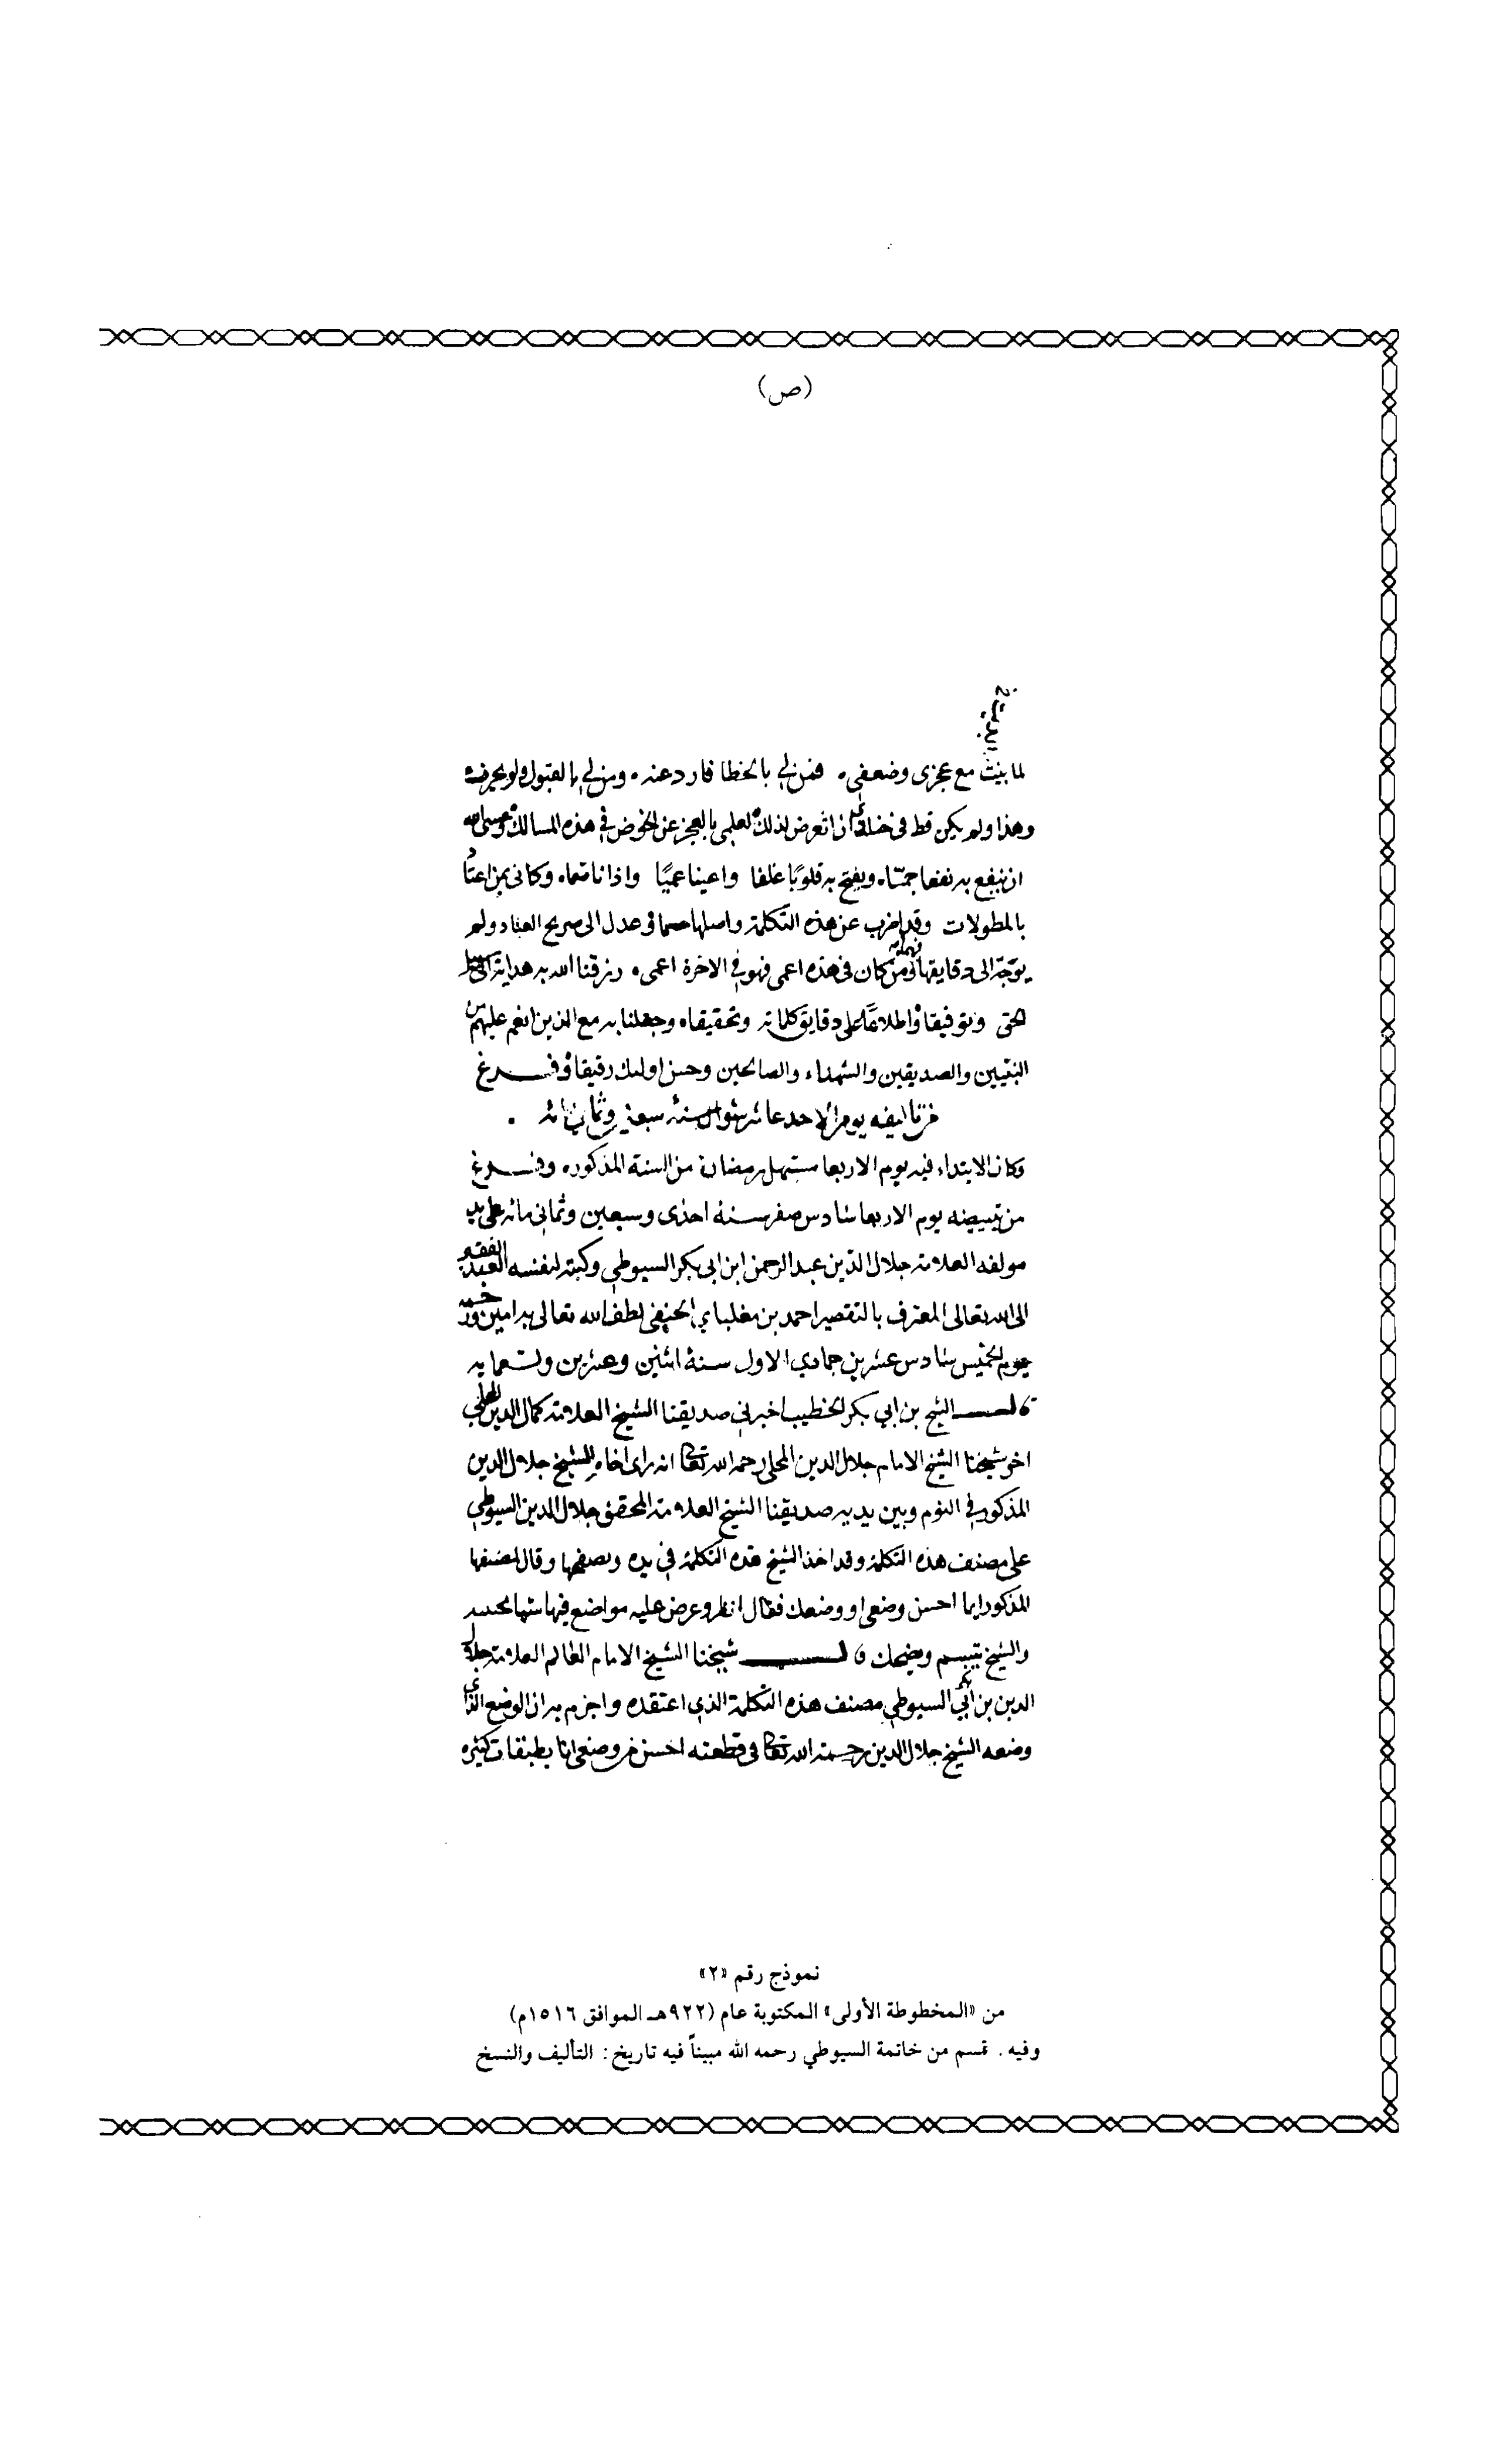 (ص)
لما بنيت مع عجزى وضعفي . فمن لي بالخطا فارد عنه . ومن لي بالقبول ولو بحرف
وهذا ولم يكن قط في خلدى ان اتعرض لذلك لعلمي بالعجز عن الخوض في هذه المسالك وعسى الله
ان ينفع به نفعا جما . ويفتح به قلوبا غلفا واعينا عميا واذانا صما . وكانى بمن اعتاد
بالمطولات وقد اضرب عن هذه التكلة واصلها حسما وعدل الى صريح العناد ولم
يوجه الى دقايقها فهما ومن كان في هذه اعمى فهو في الاخرة اعمى . رزقنا الله به هداية الى سبيل
الحق وتوفيقا واطلاعا على دقايق كلماته وتحقيقا . وجعلنا به مع الذين انعم عليهم من
النبيين والصديقين والشهداء والصالحين وحسن اولئك رفيقا وفرغ
من تاليفه يوم الاحد عاشر شوال سنة سبعين وثمان مائة .
وكان الابتداء فيه يوم الاربعا مستهل رمضان من السنة المذكوره وفرغ
من تبييضه يوم الاربعا سادس صفر سنة احدى وسبعين وثمانى مائه على يد
مولفه العلامة جلال الدين عبد الرحمن ابن ابى بكر السيوطي وكتبه لنفسه العبد الفقير
الى الله تعالى المعترف بالتقصير احمد بن مغلباي الحنفي لطف الله تعالى به امين
يوم الخميس سادس عشرين جمادي الاول سنة اثنين وعشرين وتسعمايه
قال الشيخ بن ابي بكر الخطيب اخبرني صديقنا الشيخ العلامة كمال الدين المحلي
اخو شيخنا الشيخ الامام جلال الدين المحلي رحمه الله تعالى انه راى اخاه الشيخ جلال الدين
المذكور في النوم وبين يديه صديقنا الشيخ العلامة المحقق جلال الدين السيوطي
على مصنف هذه التكلة وقد اخذ الشيخ هذه التكلة في يده وتصفحها وقال لمصنفها
المذكور ايما احسن وضعى او وضعك فقال انظر وعرض عليه مواضع فيها
والشيخ يتبسم ويضحك قال شيخنا الشيخ الامام العالم العلامة جلال
الدين بن ابي بكر السيوطي مصنف هذه التكلة الذي اعتقده واجزم به ان الوضع الذى
وضعه الشيخ جلال الدين رحمة الله تعالى في قطعته احسن من وضعى انا بطبقات كثيره
نموذج رقم «٢»
من «المخطوطة الأولى» المكتوبة عام (٩٢٢هـ الموافق ١٥١٦م)
وفيه . قسم من خاتمة السيوطي رحمه الله مبيناً فيه تاريخ : التأليف والنسخ